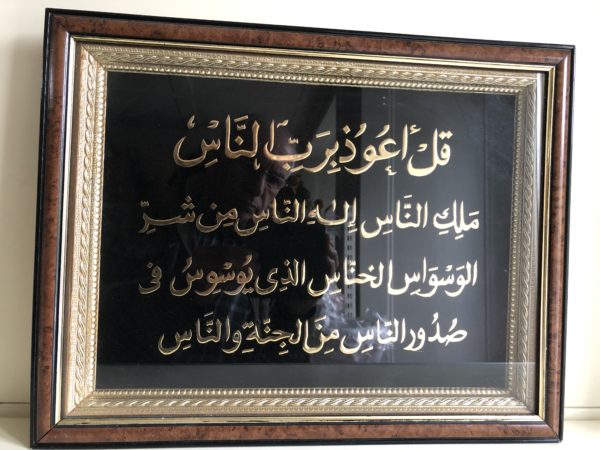 قُلْ أَعُوُذ بِرَبِّ النَّاسِ
مَلِكِ النَّاسِ إِلٰهِ النَّاسِ مِن شَرِّ
الوَسْوَاسِ الخنَّاسِ الذِى يُوَسْوِسُ فِى
صُدُورِ النَّاسِ مِنَ الجِنَّةِ والنَّاسِ